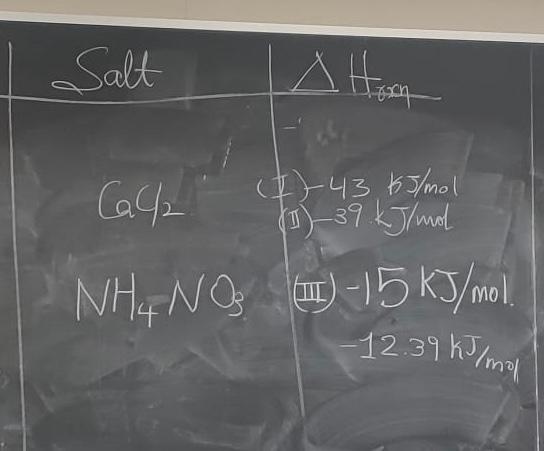 Salt ΔHrxn
CaCl2 (I) -43 KJ/mol
(II) -39 kJ/mol
NH4NO3 (III) -15 KJ/mol.
-12.39 KJ/mol